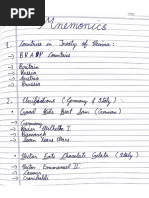 Mnemonics
1. Countries in Treaty of Vienna:
→ BRAP Countries
→ Britain
→ Russia
→ Austria
→ Prussia
2. Unifications (Germany & Italy):
→ Good Kids Beat Sam (German)
→ Germany
→ Kaiser Wilhelm I
→ Bismarck
→ Seven Years Wars
→ Victor Eats Chocolate Gelato (Italy)
→ Victor Emmanuel II
→ Cavour
→ Garibaldi